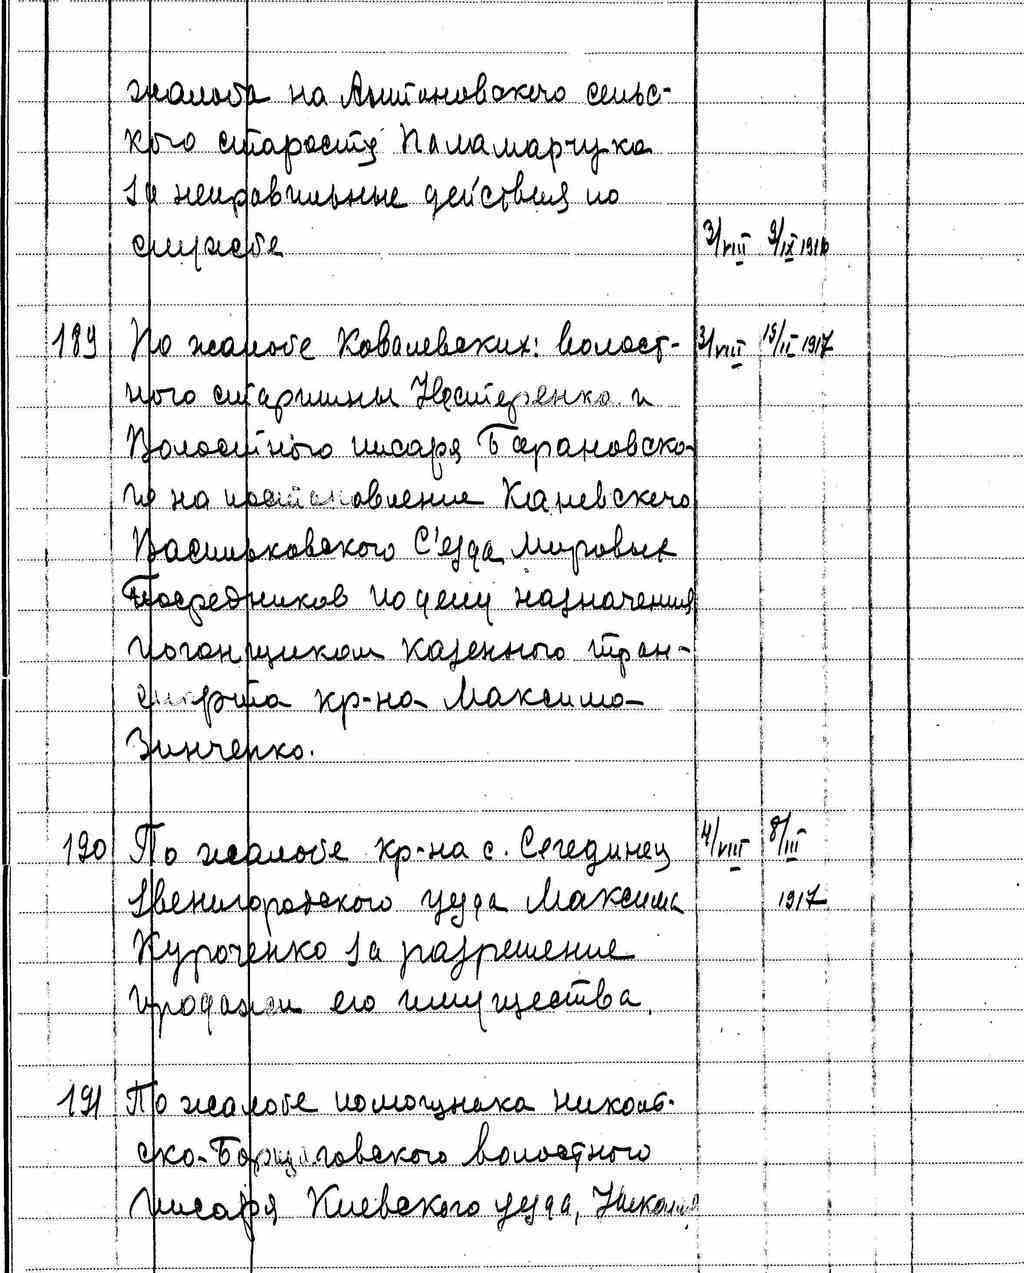 жалоба на Антоновского сельс-
кого старосту Паламарчука
за неправильные действия по
службе 3/VIII 9/IX 1916
189 По жалобе Ковалевских: волост- 3/VIII 15/II 1917
ного старшины Нестеренко и
Волостного писаря Барановско-
го на постановление Каневского
Васильковского С'езда Мировых
Посредников по делу назначения
погонщиком казенного тран-
спорта кр-на Максима
Зинченко.
190 По жалобе кр-на с. Сегединец 4/VIII 8/III
Звенигородского уезда Максима 1917
Куроченко за разрешение
продажи его имущества.
191 По жалобе помощника Николь-
ско-Борщаговского волостного
писаря Киевского уезда, Николая